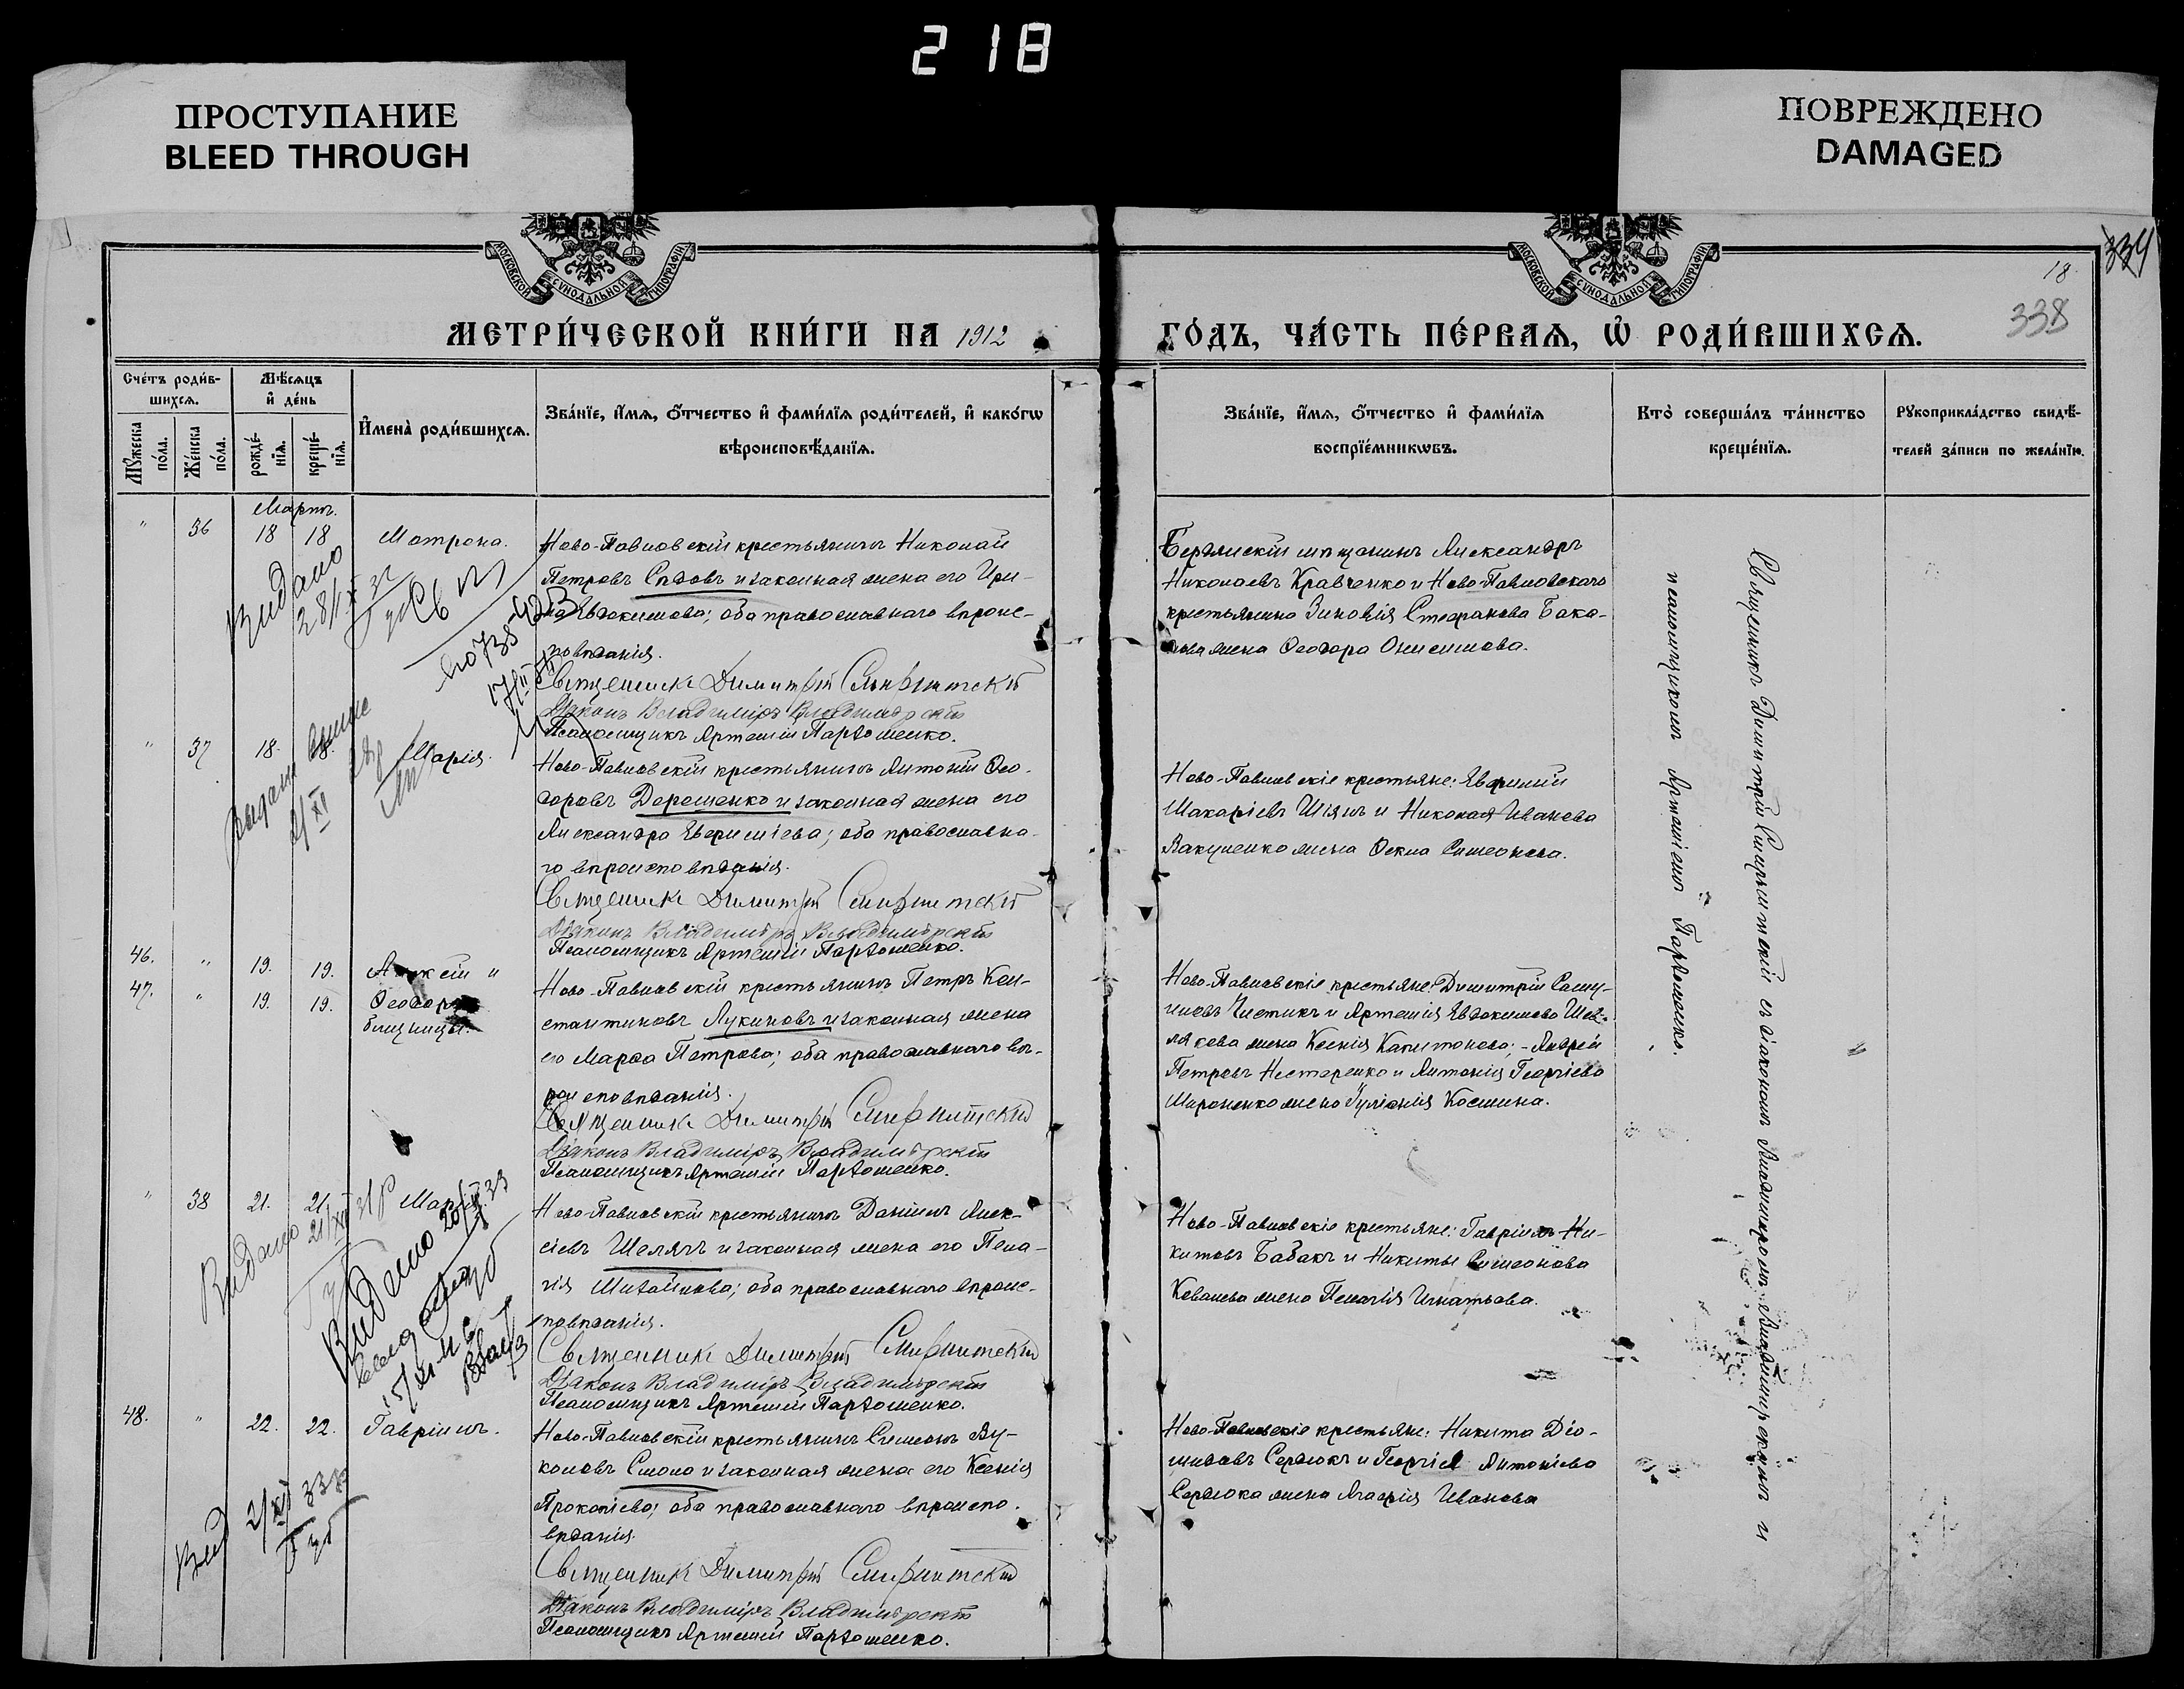 218
ПРОСТУПАНИЕ
BLEED THROUGH
ПОВРЕЖДЕНО
DAMAGED
МОСКОВСКОЙ СУНОДАЛЬНОЙ ТИПОГРАФІИ
МОСКОВСКОЙ СУНОДАЛЬНОЙ ТИПОГРАФІИ
334
18.
338
МЕТРИ́ЧЕСКОЙ КНИ́ГИ НА 1912
ГО́ДЪ, ЧА́СТЬ ПЕ́РВАѦ, Ѡ РОДИ́ВШИХСѦ.
Сче́тъ роди́в-
шихсѧ.
Мѣ́сѧцъ
и де́нь
Мꙋ́жеска
по́ла.
Же́нска
по́ла.
рожде́-
нїѧ.
креще́-
нїѧ.
Имена̀ роди́вшихсѧ.
Зва́нїе, и́мѧ, о́тчество и фами́лїѧ роди́телей, и како́гѡ
вѣроисповѣ́данїѧ.
Зва́нїе, и́мѧ, о́тчество и фами́лїѧ
воспрїе́мникѡвъ.
Кто̀ соверша́лъ та́инство
креще́нїѧ.
Рꙋкоприкла́дство свидѣ́-
телей за́писи по жела́нїю.
Мартъ.
" 36 18 18 Матрона.
Ново-Павловскій крестьянинъ Николай
Петровъ Сѣдовъ и законная жена его Ири-
на Евдокимова; оба православнаго вѣроис-
повѣданія.
Священникъ Димитрій
Діаконъ Владиміръ Владимірскій
Псаломщикъ Артемій Пархоменко.
Бердянскій мѣщанинъ Александръ
Николаевъ Кравченко и Ново-Павловскаго
крестьянина Зиновія Стефанова Бака-
жена Ѳеодора Онисимова.
Видано
28/IX 32
" 37 18. 18. Марія.
Ново-Павловскій крестьянинъ Антоній Ѳео-
доровъ Дорошенко и законная жена его
Александра Ефимиева; оба православна-
го вѣроисповѣданія.
Священникъ Димитрій
Діаконъ Владиміръ Владимірскій
Псаломщикъ Артемій Пархоменко.
Ново-Павловскіе крестьяне: Евфимій
Макаріевъ Шіянъ и Николая Иванова
Вакуленко жена Ѳекла Симеонова.
46. " 19. 19. Алексій "
47. " 19. 19. Ѳеодоръ
близнецы.
Ново-Павловскій крестьянинъ Петръ Кон-
стантиновъ Лукиновъ и законная жена
его Марѳа Петрова; оба православнаго вѣ-
роисповѣданія.
Священникъ Димитрій
Діаконъ Владиміръ Владимірскій
Псаломщикъ Артемій Пархоменко.
Ново-Павловскіе крестьяне: Димитрій Саму-
иловъ Чистикъ и Артемія Евдокимова Шев-
лякова жена Ксенія Капитонова; - Андрей
Петровъ Нестеренко и Антонія Георгіева
Мироненко жена Іуліанія Космина.
" 38 21. 21. Марія.
Ново-Павловскій крестьянинъ Даніилъ Алек-
сіевъ Шелягъ и законная жена его Пела-
гія Михайлова; оба православнаго вѣроис-
повѣданія.
Священникъ Димитрій
Діаконъ Владиміръ Владимірскій
Псаломщикъ Артемій Пархоменко.
Ново-Павловскіе крестьяне: Гавріилъ Ни-
китовъ Бабакъ и Никиты Симеонова
Ковалева жена Пелагія Игнатьова.
Видано
48. " 22. 22. Гавріилъ.
Ново-Павловскій крестьянинъ Симеонъ Ву-
коловъ Смоло и законная жена его Ксенія
Прокопіева; оба православнаго вѣроиспо-
вѣданія.
Священникъ Димитрій
Діаконъ Владиміръ Владимірскій
Псаломщикъ Артемій Пархоменко.
Ново-Павловскіе крестьяне: Никита Діо-
мидовъ Сердюкъ и Георгія Антоніева
Сердюка жена Агафія Иванова
Священникъ Димитрій съ діакономъ Владиміромъ Владимірскимъ и
псаломщикомъ Артеміемъ Пархоменко.